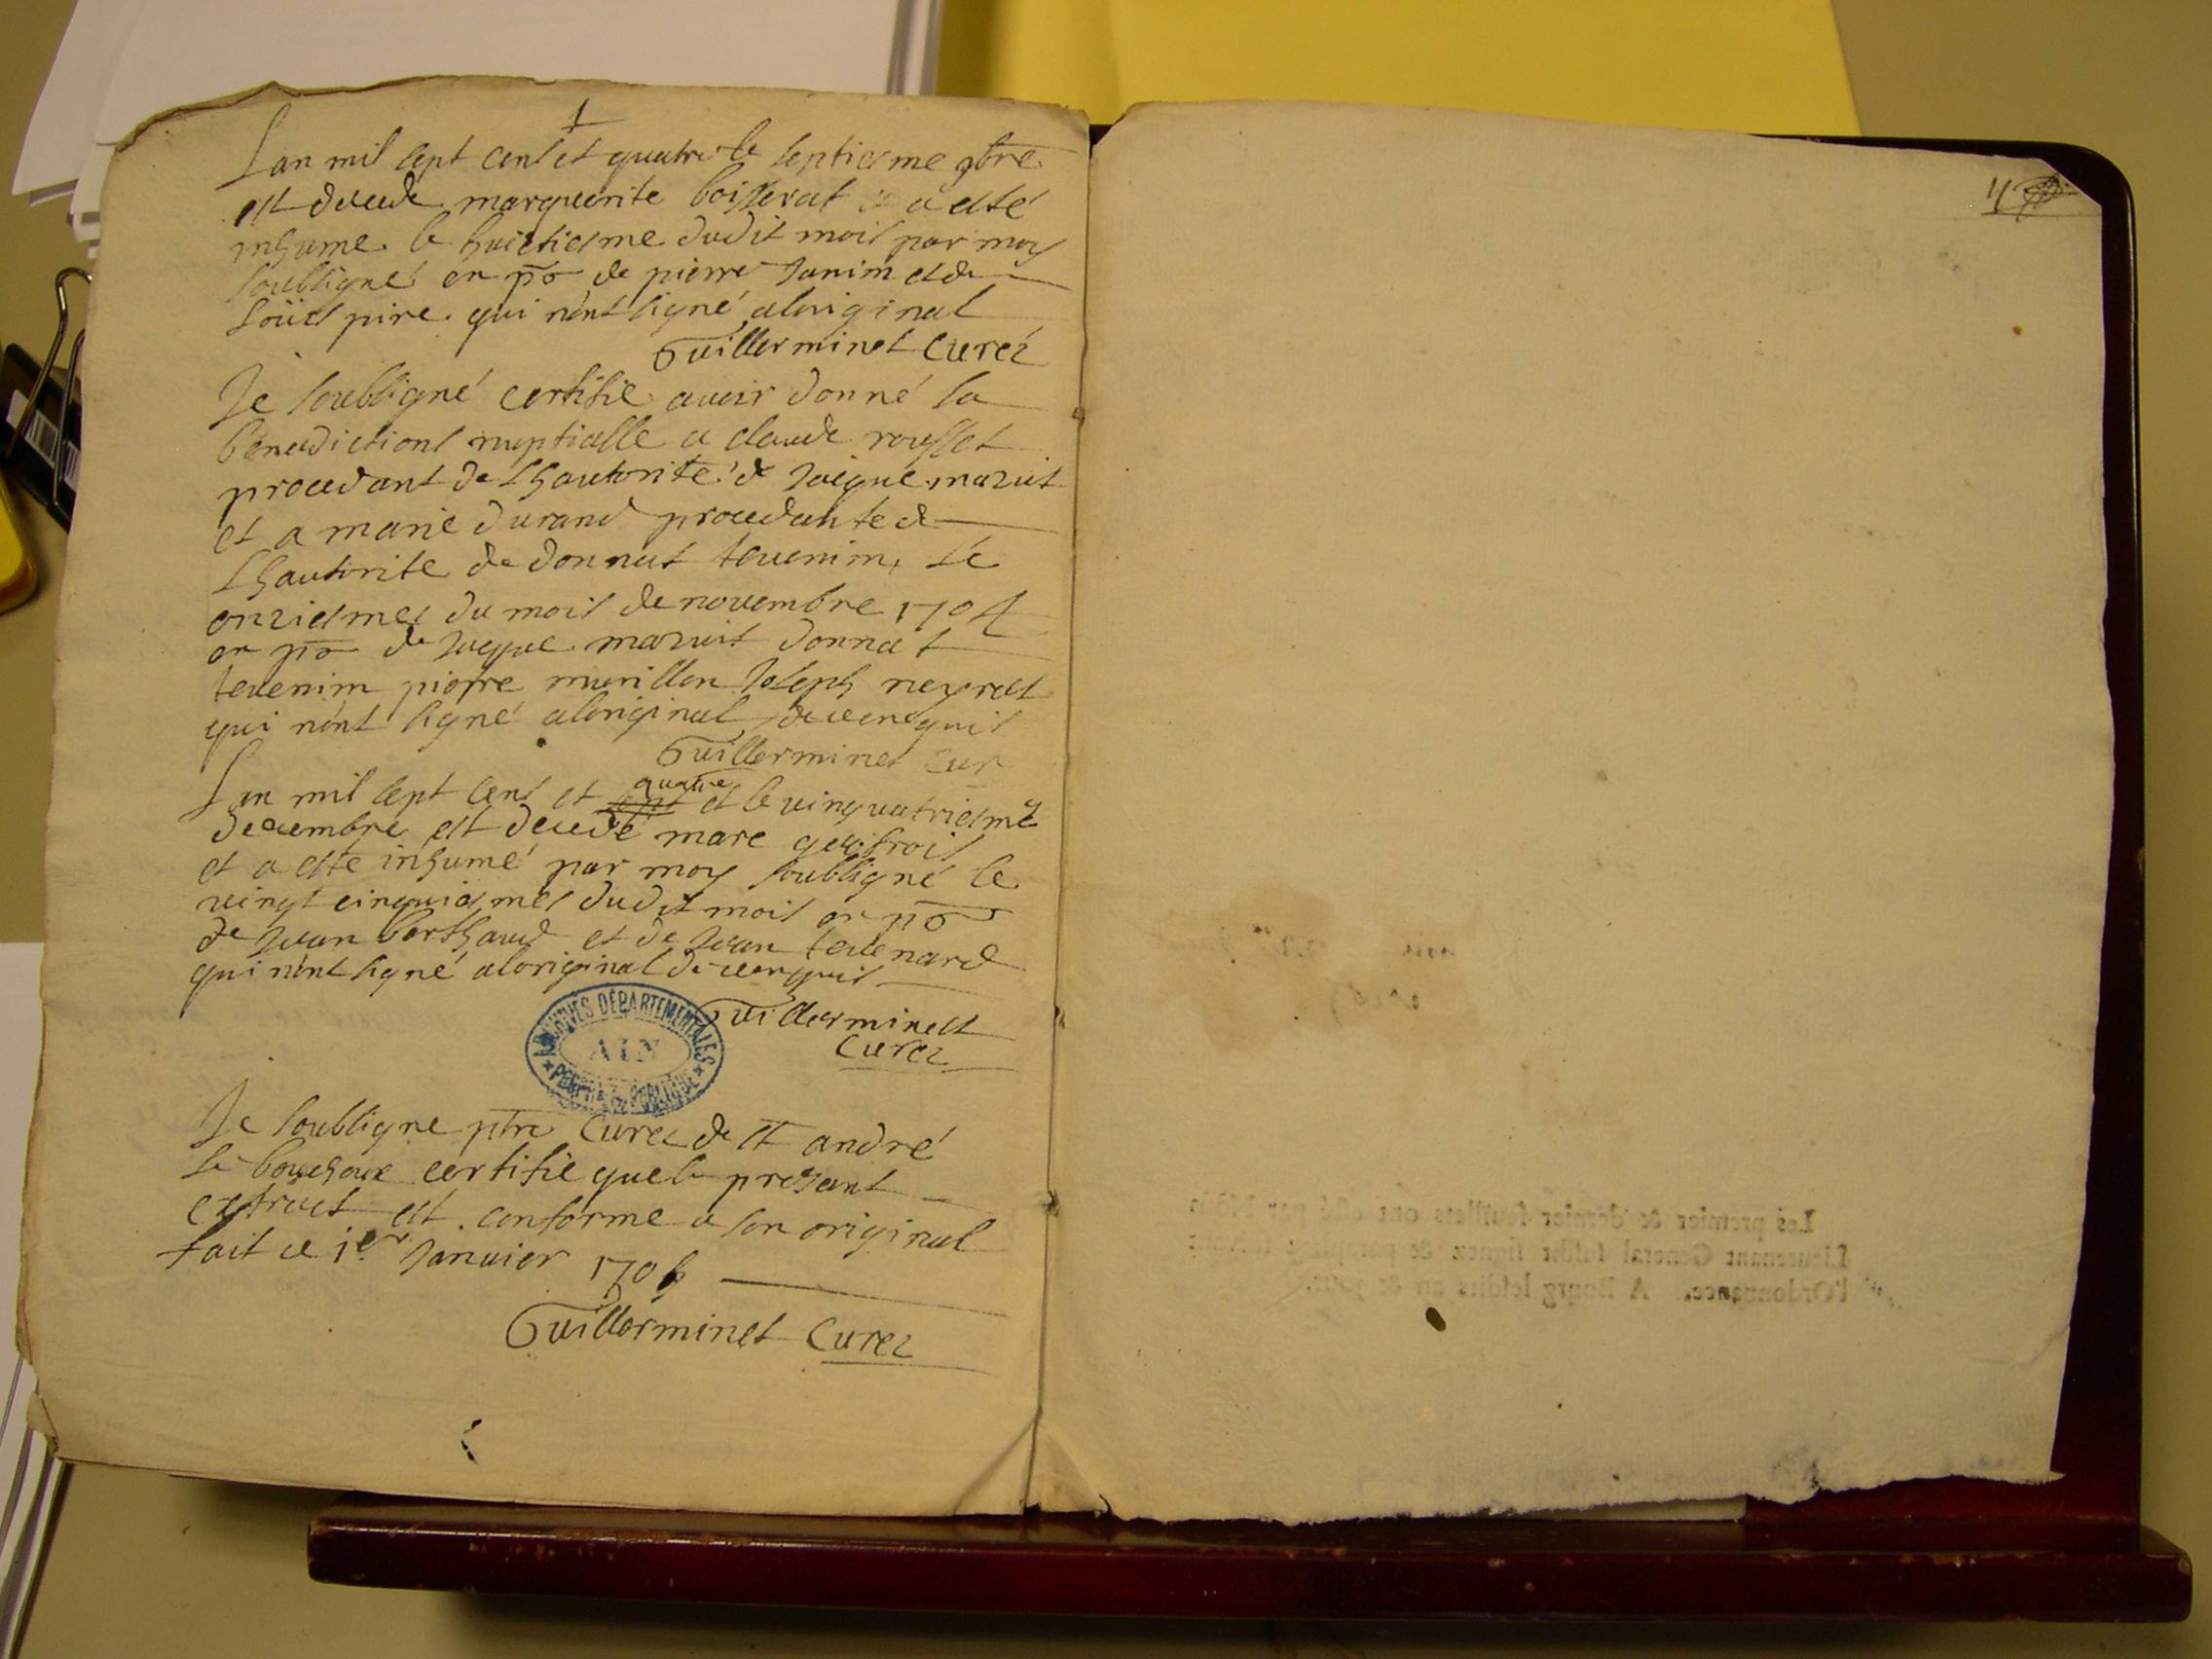 Lan mil sept cent et quatre le septiesme 9bre
est decede marguerite boisserat a esté
inhume le huictiesme dudit mois par moy
soubsigné en pnc de pierre Janim et de
qui n'ont signé a loriginal
Guillerminet Curez
Je soubsigné certifie avoir donné la
benedictions nuptialle a claude rousset
procedant de Lhautorité de Jacque mazuit
et a marie durand procedante de
Lhautorite de donnat tevenim, Le
onziesmes du mois de novembre 1704
en pnc de Jacque mazuit donnat
tevenim pierre murillon Joseph neyret
qui n'ont signé a loriginal de ce enquis
Guillerminet Cur
Lan mil sept cens et sept quatre et le vingquatriesme
decembre est decedé marc
et a esté inhumé par moy soubsigné le
vingt cinquiesmes dudit mois en pnc
de Jean berthaud et de Jean tevenard
qui n'ont signé a loriginal de ce enquis
Guillerminet
Curez
ARCHIVES DÉPARTEMENTALES
AIN
Je soubsigne ptre Curez de St andré
le bouchoux certifie que le presant
extraict est conforme a son original
fait ce 1er Janvier 1706
Guillerminet Curez
Les premier & dernier feuillets ont esté par Nous
Lieutenant General susdit signez & paraphez suivant
l'Ordonnance. A Bourg lesdits an & jour.